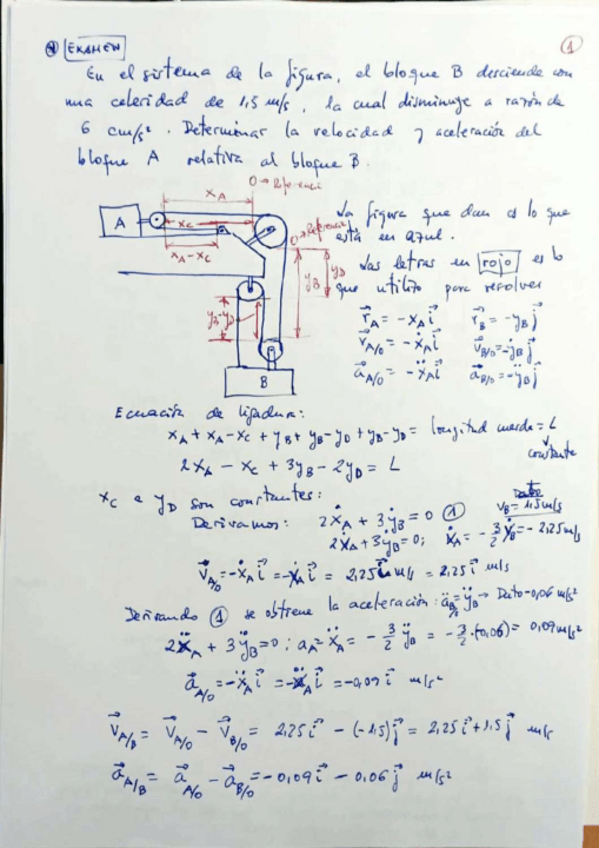 EXAMEN
1
En el sistema de la figura, el bloque B desciende con
una celeridad de 1,5 m/s, la cual disminuye a razón de
6 cm/s². Determinar la velocidad y aceleración del
bloque A relativa al bloque B.
x_A
O → Referencia
A
x_C
O → Referencia
x_A - x_C
y_B
y_D
y_B - y_D
B
La figura que dan es lo que
está en azul.
Las letras en rojo es lo
que utilizo para resolver
r⃗_A = -x_A i⃗   r⃗_B = -y_B j⃗
v⃗_A/O = -ẋ_A i⃗   v⃗_B/O = -ẏ_B j⃗
a⃗_A/O = -ẍ_A i⃗   a⃗_B/O = -ÿ_B j⃗
Ecuación de ligadura:
x_A + x_A - x_C + y_B + y_B - y_D + y_B - y_D = longitud cuerda = L
constante
2x_A - x_C + 3y_B - 2y_D = L
x_C e y_D son constantes:
Dato
v_B = 1,5 m/s
Derivamos: 2ẋ_A + 3ẏ_B = 0 ①
2ẋ_A + 3ẏ_B = 0; ẋ_A = -3/2 ẏ_B = -2,25 m/s
v⃗_A/O = -ẋ_A i⃗ = -ẋ_A i⃗ = 2,25 i⃗ m/s = 2,25 i⃗ m/s
Derivando ① se obtiene la aceleración: a_B/O = ÿ_B → Dato -0,06 m/s²
2ẍ_A + 3ÿ_B = 0; a_A = ẍ_A = -3/2 ÿ_B = -3/2·(-0,06) = 0,09 m/s²
a⃗_A/O = -ẍ_A i⃗ = -ẍ_A i⃗ = -0,09 i⃗ m/s²
v⃗_A/B = v⃗_A/O - v⃗_B/O = 2,25 i⃗ - (-1,5) j⃗ = 2,25 i⃗ + 1,5 j⃗ m/s
a⃗_A/B = a⃗_A/O - a⃗_B/O = -0,09 i⃗ - 0,06 j⃗ m/s²